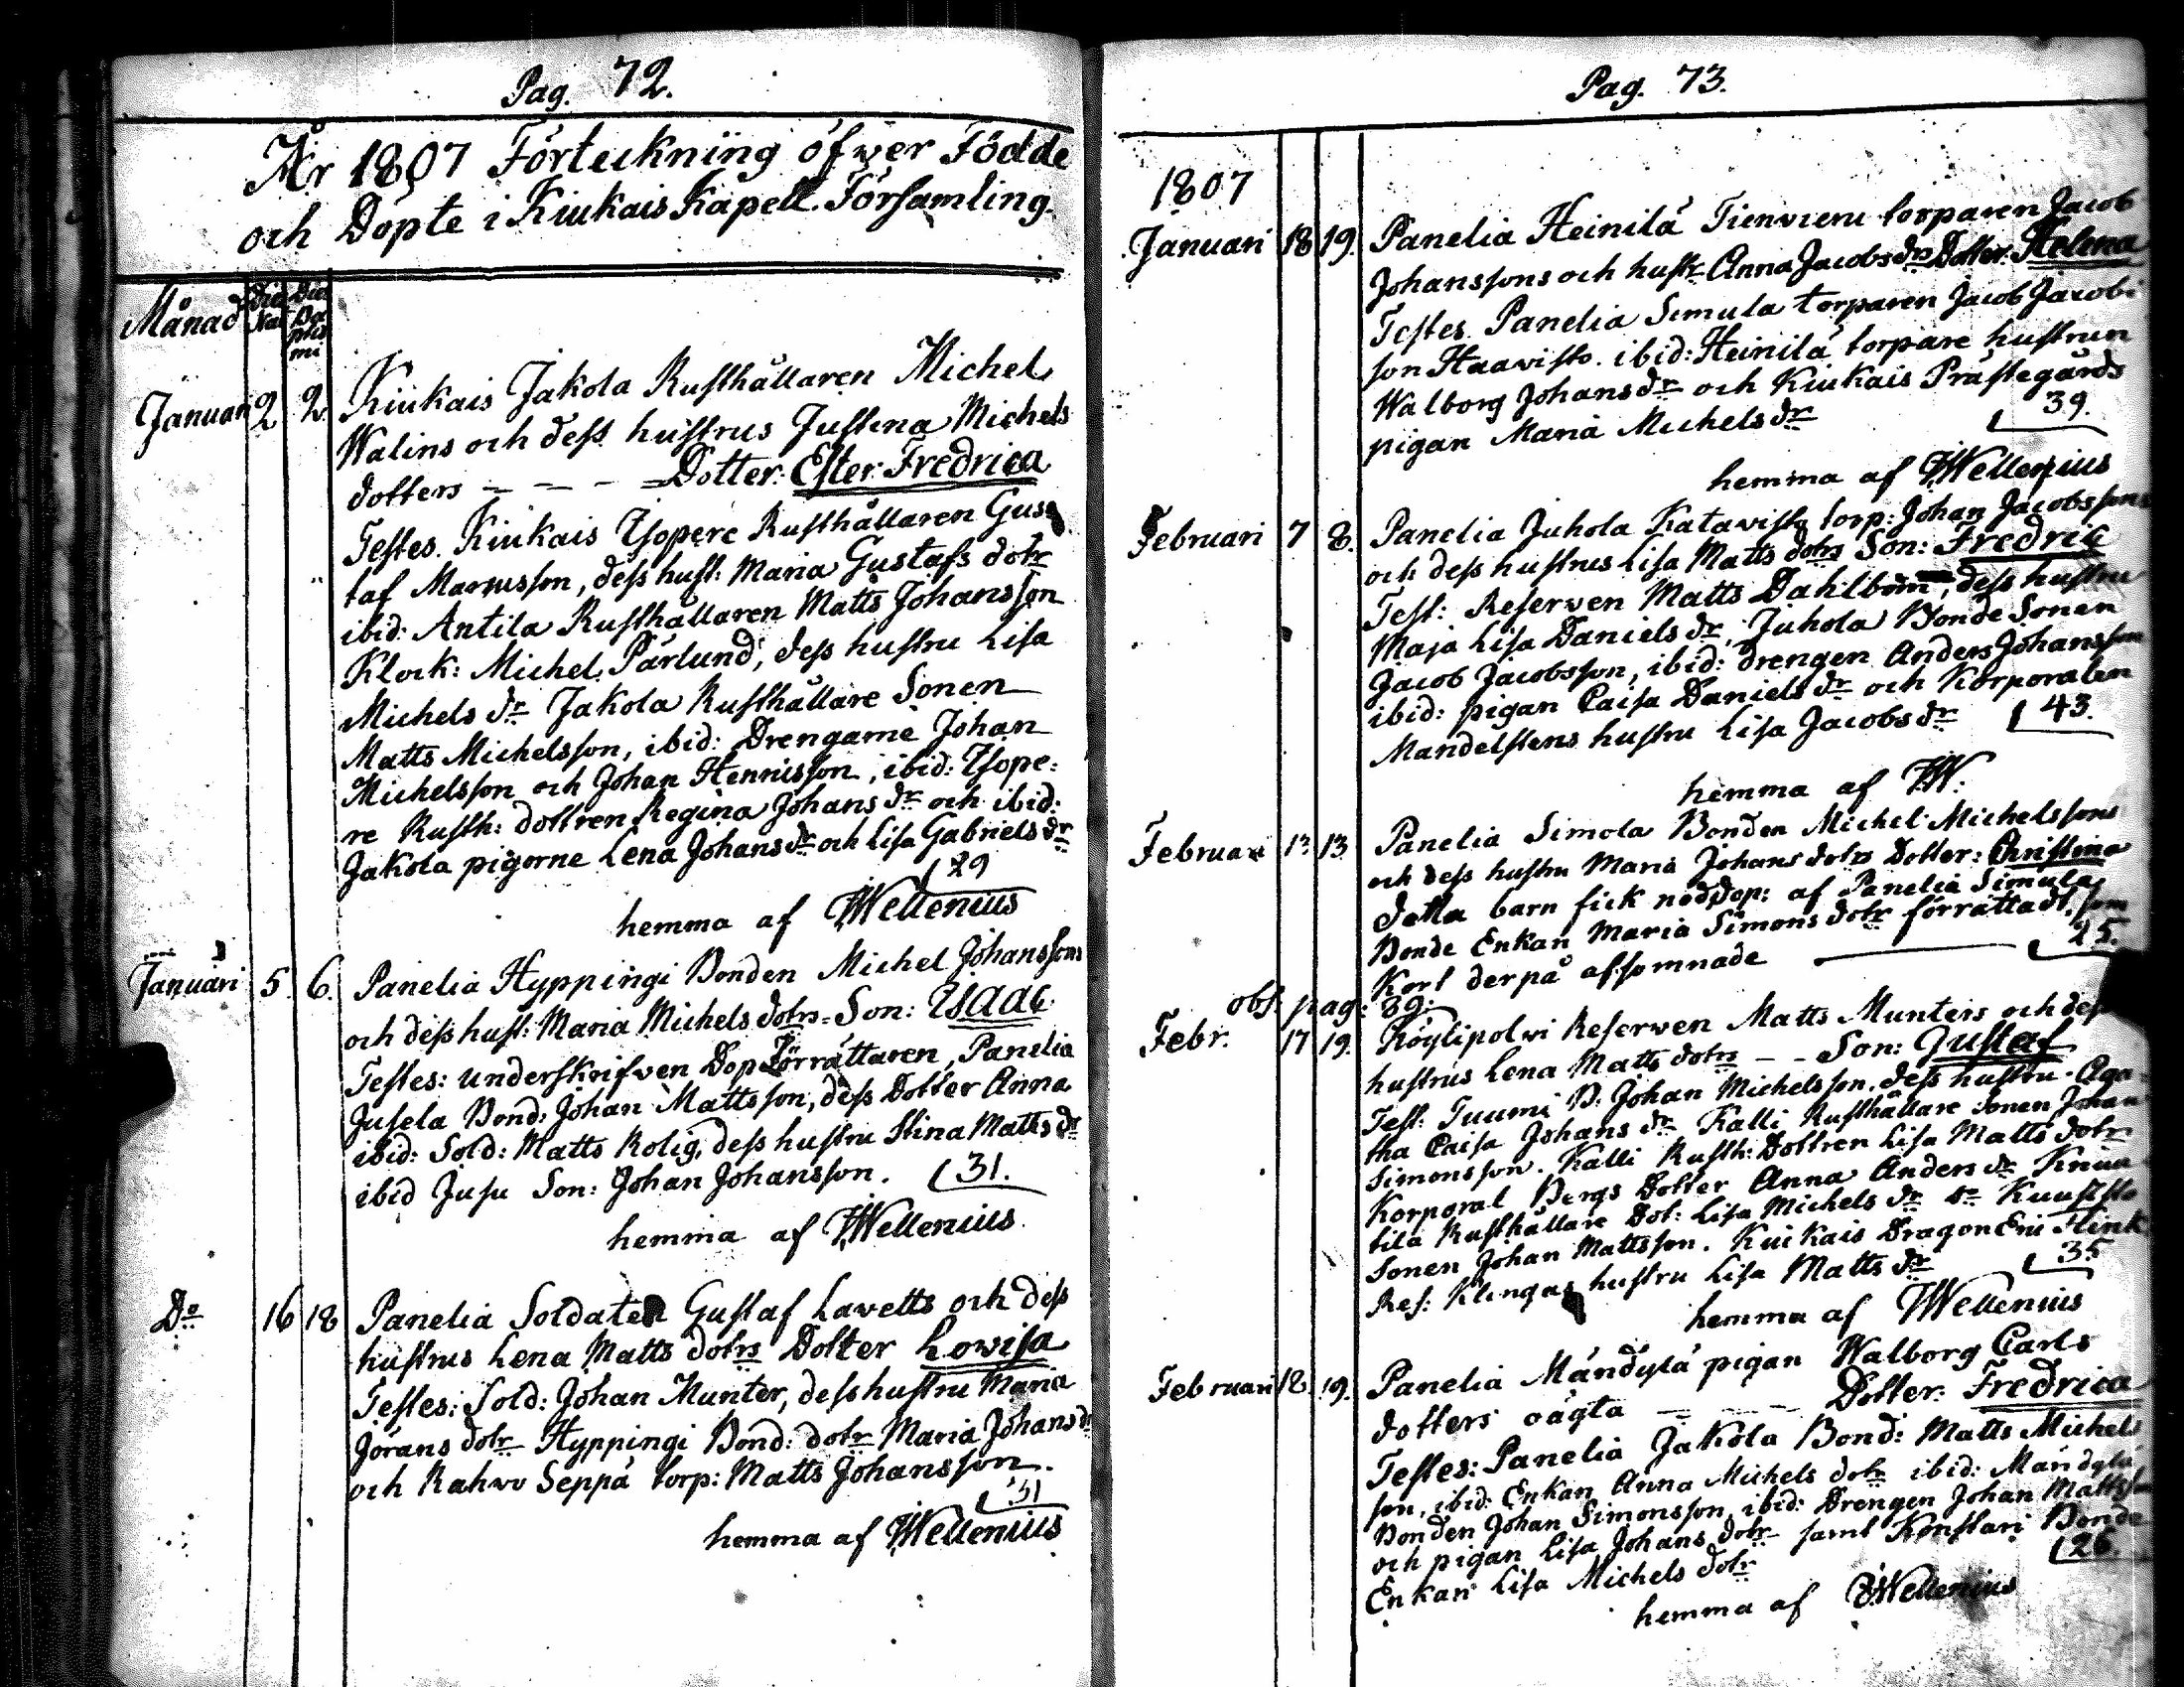 Pag. 72.
År 1807 Förteckning öfwer Födde
och Döpte i Kiukais Kapell. Församling.
Månad Die Nat Dies Baptismi
Januari 2 2. Kiukais Jakola Rusthållaren Michel
Walins och dess hustrus Justina Michels
dotters — — — Dotter: Ester Fredrica
Testes. Kiukais Isopere Rusthållaren Gus
taf Marcusson, dess hust: Maria Gustafs dotr
ibid: Antila Rusthållaren Matts Johansson
Klock: Michel Pärlund, dess hustru Lisa
Michels dr Jakola Rusthållare Sonen
Matts Michelsson, ibid: Drengarne Johan
Michelsson och Johan Hennisson, ibid: Isope:
re Rusth: dottren Regina Johans dr och ibid:
Jakola pigorne Lena Johans dr och Lisa Gabriels dr
29
hemma af JWellenius
Januari 5. 6. Panelia Hyppingi Bonden Michel Johanssons
och dess hust: Maria Michels dotrs Son: Isaac
Testes: underskrifven Dop Förrättaren, Panelia
Jusela Bond: Johan Mattsson, dess Dotter Anna
ibid: Sold: Matts Rolig, dess hustru Stina Matts dr
ibid Jusu Son: Johan Johansson. 31.
hemma af JWellenius.
Do 16 18 Panelia Soldaten Gustaf Lavetts och dess
hustrus Lena Matts dotrs Dotter Lowisa
Testes: Sold: Johan Munter, dess hustru Maria
Jörans dotr Hyppingi Bond: dotr Maria Johans dr
och Rahvo Seppä torp: Matts Johansson.
31
hemma af JWellenius
Pag. 73.
1807
Januari 18 19. Panelia Heinilä Tienvieru torparen Jacob
Johanssons och hustr Anna Jacobs drs Dotter: Helena
Testes. Panelia Simula torparen Jacob Jacobs
son Haavisto. ibid: Heinilä torpare hustrun
Walborg Johans dr och Kiukais Prästegårds
pigan Maria Michels dr 39.
hemma af JWellenius
Februari 7 8. Panelia Juhola Katavisto torp: Johan Jacobssons
och dess hustrus Lisa Matts dotrs Son: Fredric
Test: Reserven Matts Dahlbom, dess hustru
Maja Lisa Daniels dr, Juhola Bonde Sonen
Jacob Jacobsson, ibid: drengen Anders Johansson
ibid: pigan Caisa Daniels dr och Korporalen
Mandelstens hustru Lisa Jacobs dr 43.
hemma af JW.
Februari 13 13 Panelia Simola Bonden Michel Michelssons
och dess hustru Maria Johans dotrs Dotter: Christina
detta barn fick nöddop: af Panelia Simula
Bonde Enkan Maria Simons dotr förrättadt, som
Kort derpå afsomnade — 25.
obs. pag: 89:
Febr. 17 19. Köylipolvi Reserven Matts Munters och dess
hustrus Lena Matts dotrs — — Son: Gustaf
Test: Tuumi B: Johan Michelsson, dess hustru Aga
tha Caisa Johans dr Kalli Rusthållare Sonen Johan
Simonsson. Kalli Rusth: Dottren Lisa Matts dotr
Korporal Bergs Dotter Anna Anders dr
tila Rusthållare Dot: Lisa Michels dr
Sonen Johan Mattsson. Kiukais Dragon Flink
Res: Klingas hustru Lisa Matts dr 35
hemma af JWellenius
Februari 18 19. Panelia Mändylä pigan Walborg Carls
dotters oägta — — — Dotter: Fredrica
Testes: Panelia Jakola Bond: Matts Michels
son, ibid: Enkan Anna Michels dotr ibid: Mändylä
Bonden Johan Simonsson, ibid: Drengen Johan Mattsson
och pigan Lisa Johans dotr samt Konstari Bonde
Enkan Lisa Michels dotr 26.
hemma af JWellenius